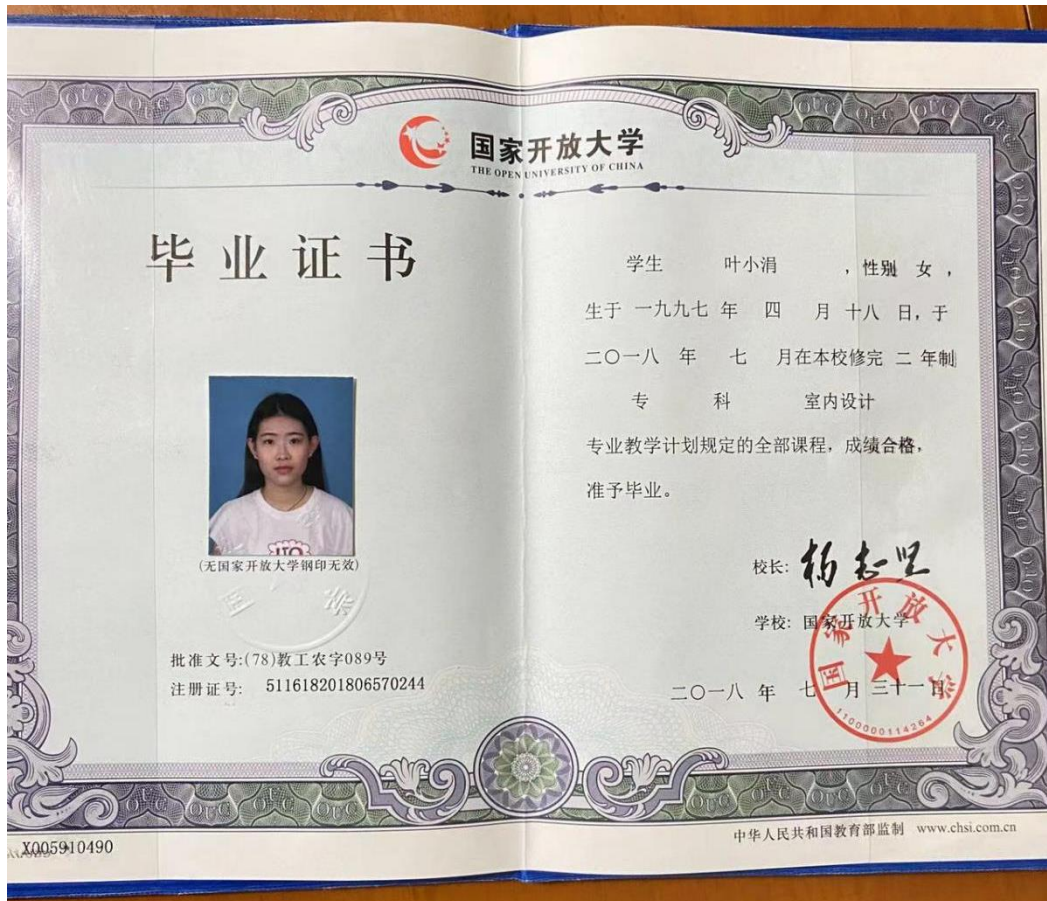 国家开放大学
THE OPEN UNIVERSITY OF CHINA
毕业证书
(无国家开放大学钢印无效)
批准文号:(78)教工农字089号
注册证号: 511618201806570244
X005910490
学生 叶小涓 ，性别 女，
生于 一九九七 年 四 月 十八 日，于
二〇一八 年 七 月在本校修完 二 年制
专 科 室内设计
专业教学计划规定的全部课程，成绩合格，
准予毕业。
校长: 杨志坚
学校: 国家开放大学
国家开放大学
1100000114264
二〇一八 年 七 月 三十一 日
中华人民共和国教育部监制 www.chsi.com.cn